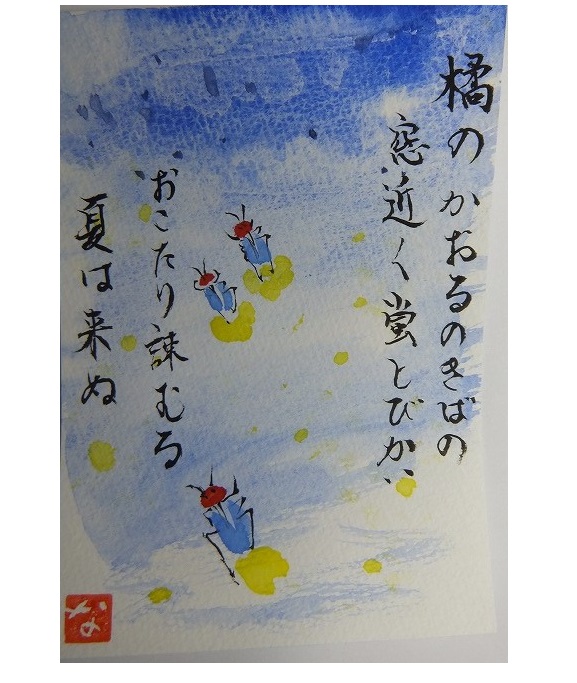 橘のかおるのきばの
窓近く蛍とびかい
おこたり諌むる
夏は来ぬ
な